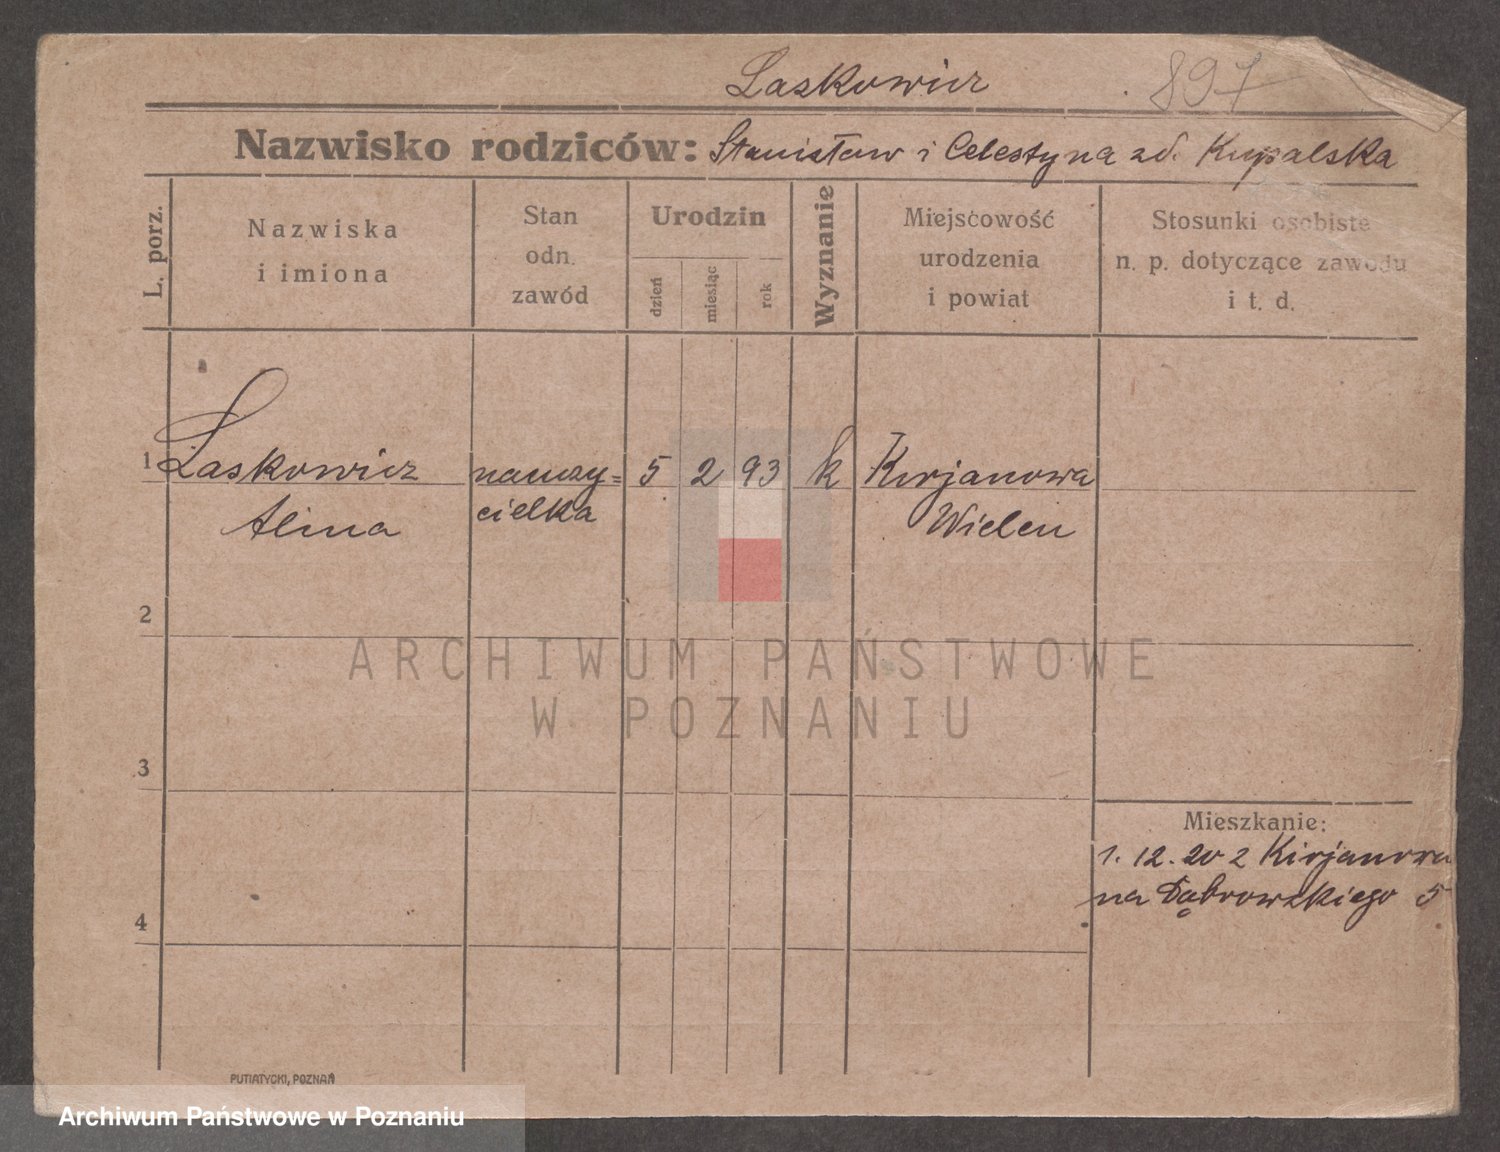 Laskowicz
897
Nazwisko rodziców: Stanisław i Celestyna zd. Kupalska
L. porz.
Nazwiska
i imiona
Stan
odn.
zawód
Urodzin
dzień
miesiąc
rok
Wyznanie
Miejscowość
urodzenia
i powiat
Stosunki osobiste
n. p. dotyczące zawodu
i t. d.
1 Laskowicz nauczy= 5 2 93 k Kirjanowa
Alina cielka Wielen
2
ARCHIWUM PAŃSTWOWE
W POZNANIU
3
Mieszkanie:
1. 12. 20 z Kirjanowa
na Dąbrowskiego 5
4
PUTIATYCKI, POZNAŃ
Archiwum Państwowe w Poznaniu